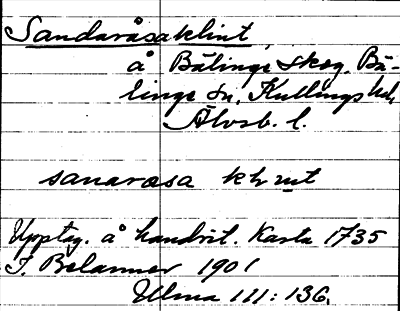 Sandaråsaklint
å Bälinge skog, Bä-
linge sn, Kullings hd,
Älvsb. l.
sanarasa
Upptag. å handrit. karta 1735
J. Belanner 1901
Ulma 111:136.